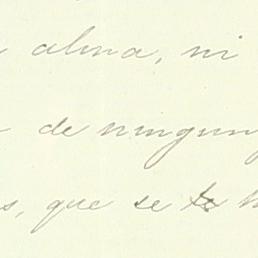 alma, ni
de ningun
s, que se